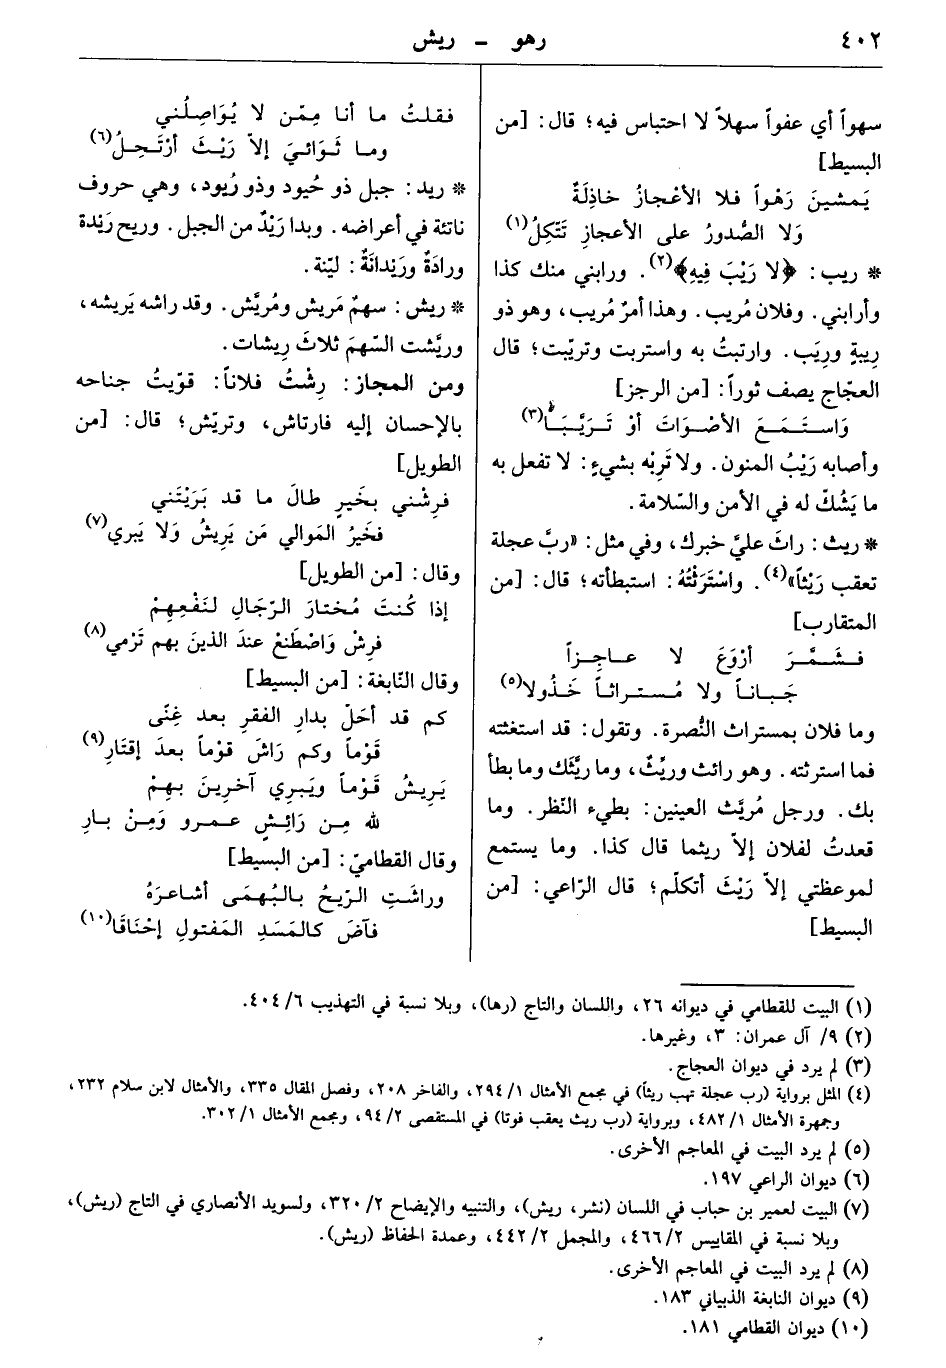 ٤٠٢
رهو ــ ريش
سهواً أي عفواً سهلاً لا احتباس فيه؛ قال: [من
البسيط]
يَمشينَ رَهْواً فلا الأعْجازُ خاذِلَةٌ
وَلا الصُّدورُ على الأعجازِ تَتَّكِلُ(١)
* ريب: ﴿لا رَيْبَ فِيهِ﴾(٢). ورابني منك كذا
وأرابني. وفلان مُريب. وهذا أمرٌ مُريب، وهو ذو
رِيبةٍ ورِيَب. وارتبتُ به واستربت وتريّبت؛ قال
العجّاج يصف ثوراً: [من الرجز]
وَاسـتَـمَـعَ الأصْـوَاتَ أوْ تَـرَيَّـبَـا(٣)
وأصابه رَيْبُ المنون. ولا تَرِبْه بشيءٍ: لا تفعل به
ما يَشُكّ له في الأمن والسّلامة.
* ريث: راثَ عليَّ خبرك، وفي مثل: «ربَّ عجلة
تعقب رَيْثاً»(٤). واسْتَرَثْتُهُ: استبطأته؛ قال: [من
المتقارب]
فـشَـمَّـرَ أرْوَعَ لا عـاجِـزاً
جَـبـانـاً ولا مُـسـتـراثـاً خَـذُولا(٥)
وما فلان بمستراث النُّصرة. وتقول: قد استغثته
فما استرثته. وهو رائث وريِّث، وما ريَّثَك وما بطأ
بك. ورجل مُريَّث العينين: بطيء النّظر. وما
قعدتُ لفلان إلاّ ريثما قال كذا. وما يستمع
لموعظتي إلاّ رَيْثَ أتكلّم؛ قال الرّاعي: [من
البسيط]
فقلتُ ما أنا مِمّن لا يُوَاصِلُني
وما ثَوَائيَ إلاّ رَيْثَ أرْتَحِلُ(٦)
* ريد: جبل ذو حُيود وذو رُيود، وهي حروف
ناتئة في أعراضه. وبدا رَيْدٌ من الجبل. وريح رَيْدة
ورادَةٌ ورَيْدانَةٌ: ليّنة.
* ريش: سهمٌ مَريش ومُريَّش. وقد راشه يَريشه،
وريَّشت السّهمَ ثلاثَ رِيشات.
ومن المجاز: رِشْتُ فلاناً: قوّيتُ جناحه
بالإحسان إليه فارتاش، وتريّش؛ قال: [من
الطويل]
فرِشْني بخَيرٍ طالَ ما قد بَرَيْتَني
فخَيرُ المَوالي مَن يَرِيشُ وَلا يَبري(٧)
وقال: [من الطويل]
إذا كُنتَ مُختارَ الرّجَالِ لنَفْعِهِمْ
فرِشْ وَاصْطَنعْ عندَ الذينَ بهم تَرْمي(٨)
وقال النّابغة: [من البسيط]
كم قد أحَلّ بدارِ الفقرِ بعد غِنًى
قَوْماً وكم رَاشَ قوْماً بعدَ إقتَارِ(٩)
يَرِيشُ قَوْماً ويَبرِي آخرِينَ بهِمْ
لله مِـن رَائِـشٍ عـمـرو وَمِـنْ بـارِ
وقال القطاميّ: [من البسيط]
وراشَتِ الرّيحُ بالبُهمَى أشاعرَهُ
فآضَ كالمَسَدِ المَفتولِ إحْنَاقَا(١٠)
(١) البيت للقطامي في ديوانه ٢٦، واللسان والتاج (رها)، وبلا نسبة في التهذيب ٦/ ٤٠٤.
(٢) ٩/ آل عمران: ٣، وغيرها.
(٣) لم يرد في ديوان العجاج.
(٤) المثل برواية (رب عجلة تهب ريثاً) في مجمع الأمثال ١/ ٢٩٤، والفاخر ٢٠٨، وفصل المقال ٣٣٥، والأمثال لابن سلام ٢٣٢،
وجمهرة الأمثال ١/ ٤٨٢، وبرواية (رب ريث يعقب فوتا) في المستقصى ٢/ ٩٤، ومجمع الأمثال ١/ ٣٠٢.
(٥) لم يرد البيت في المعاجم الأخرى.
(٦) ديوان الراعي ١٩٧.
(٧) البيت لعمير بن حباب في اللسان (نشر، ريش)، والتنبيه والإيضاح ٢/ ٣٢٠، ولسويد الأنصاري في التاج (ريش)،
وبلا نسبة في المقاييس ٢/ ٤٦٦، والمجمل ٢/ ٤٤٢، وعمدة الحفاظ (ريش).
(٨) لم يرد البيت في المعاجم الأخرى.
(٩) ديوان النابغة الذبياني ١٨٣.
(١٠) ديوان القطامي ١٨١.